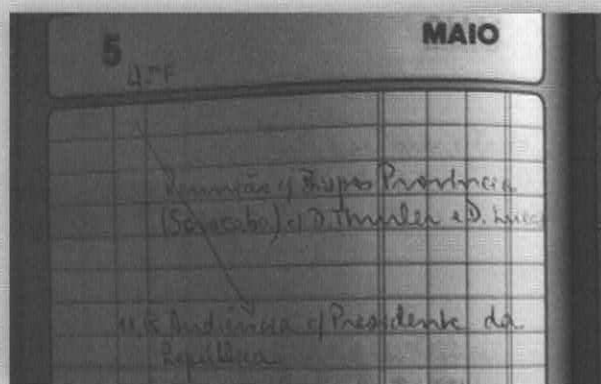 5
MAIO
4ª F
Reunião c/ Bispos Província
(Sorocaba) c/ D. Thurler e D. Lucas
Audiência c/ Presidente da
República